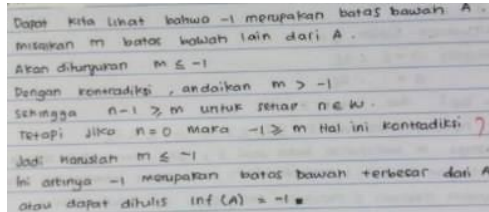 Dapat kita lihat bahwa -1 merupakan batas bawah A.
misalkan m batas bawah lain dari A.
Akan ditunjukan m ≤ -1
Dengan kontradiksi, andaikan m > -1
sehingga n-1 ≥ m untuk setiap n ∈ W.
Tetapi jika n = 0 maka -1 ≥ m Hal ini kontradiksi ?
Jadi haruslah m ≤ -1
Ini artinya -1 merupakan batas bawah terbesar dari A
atau dapat ditulis inf (A) = -1 ■